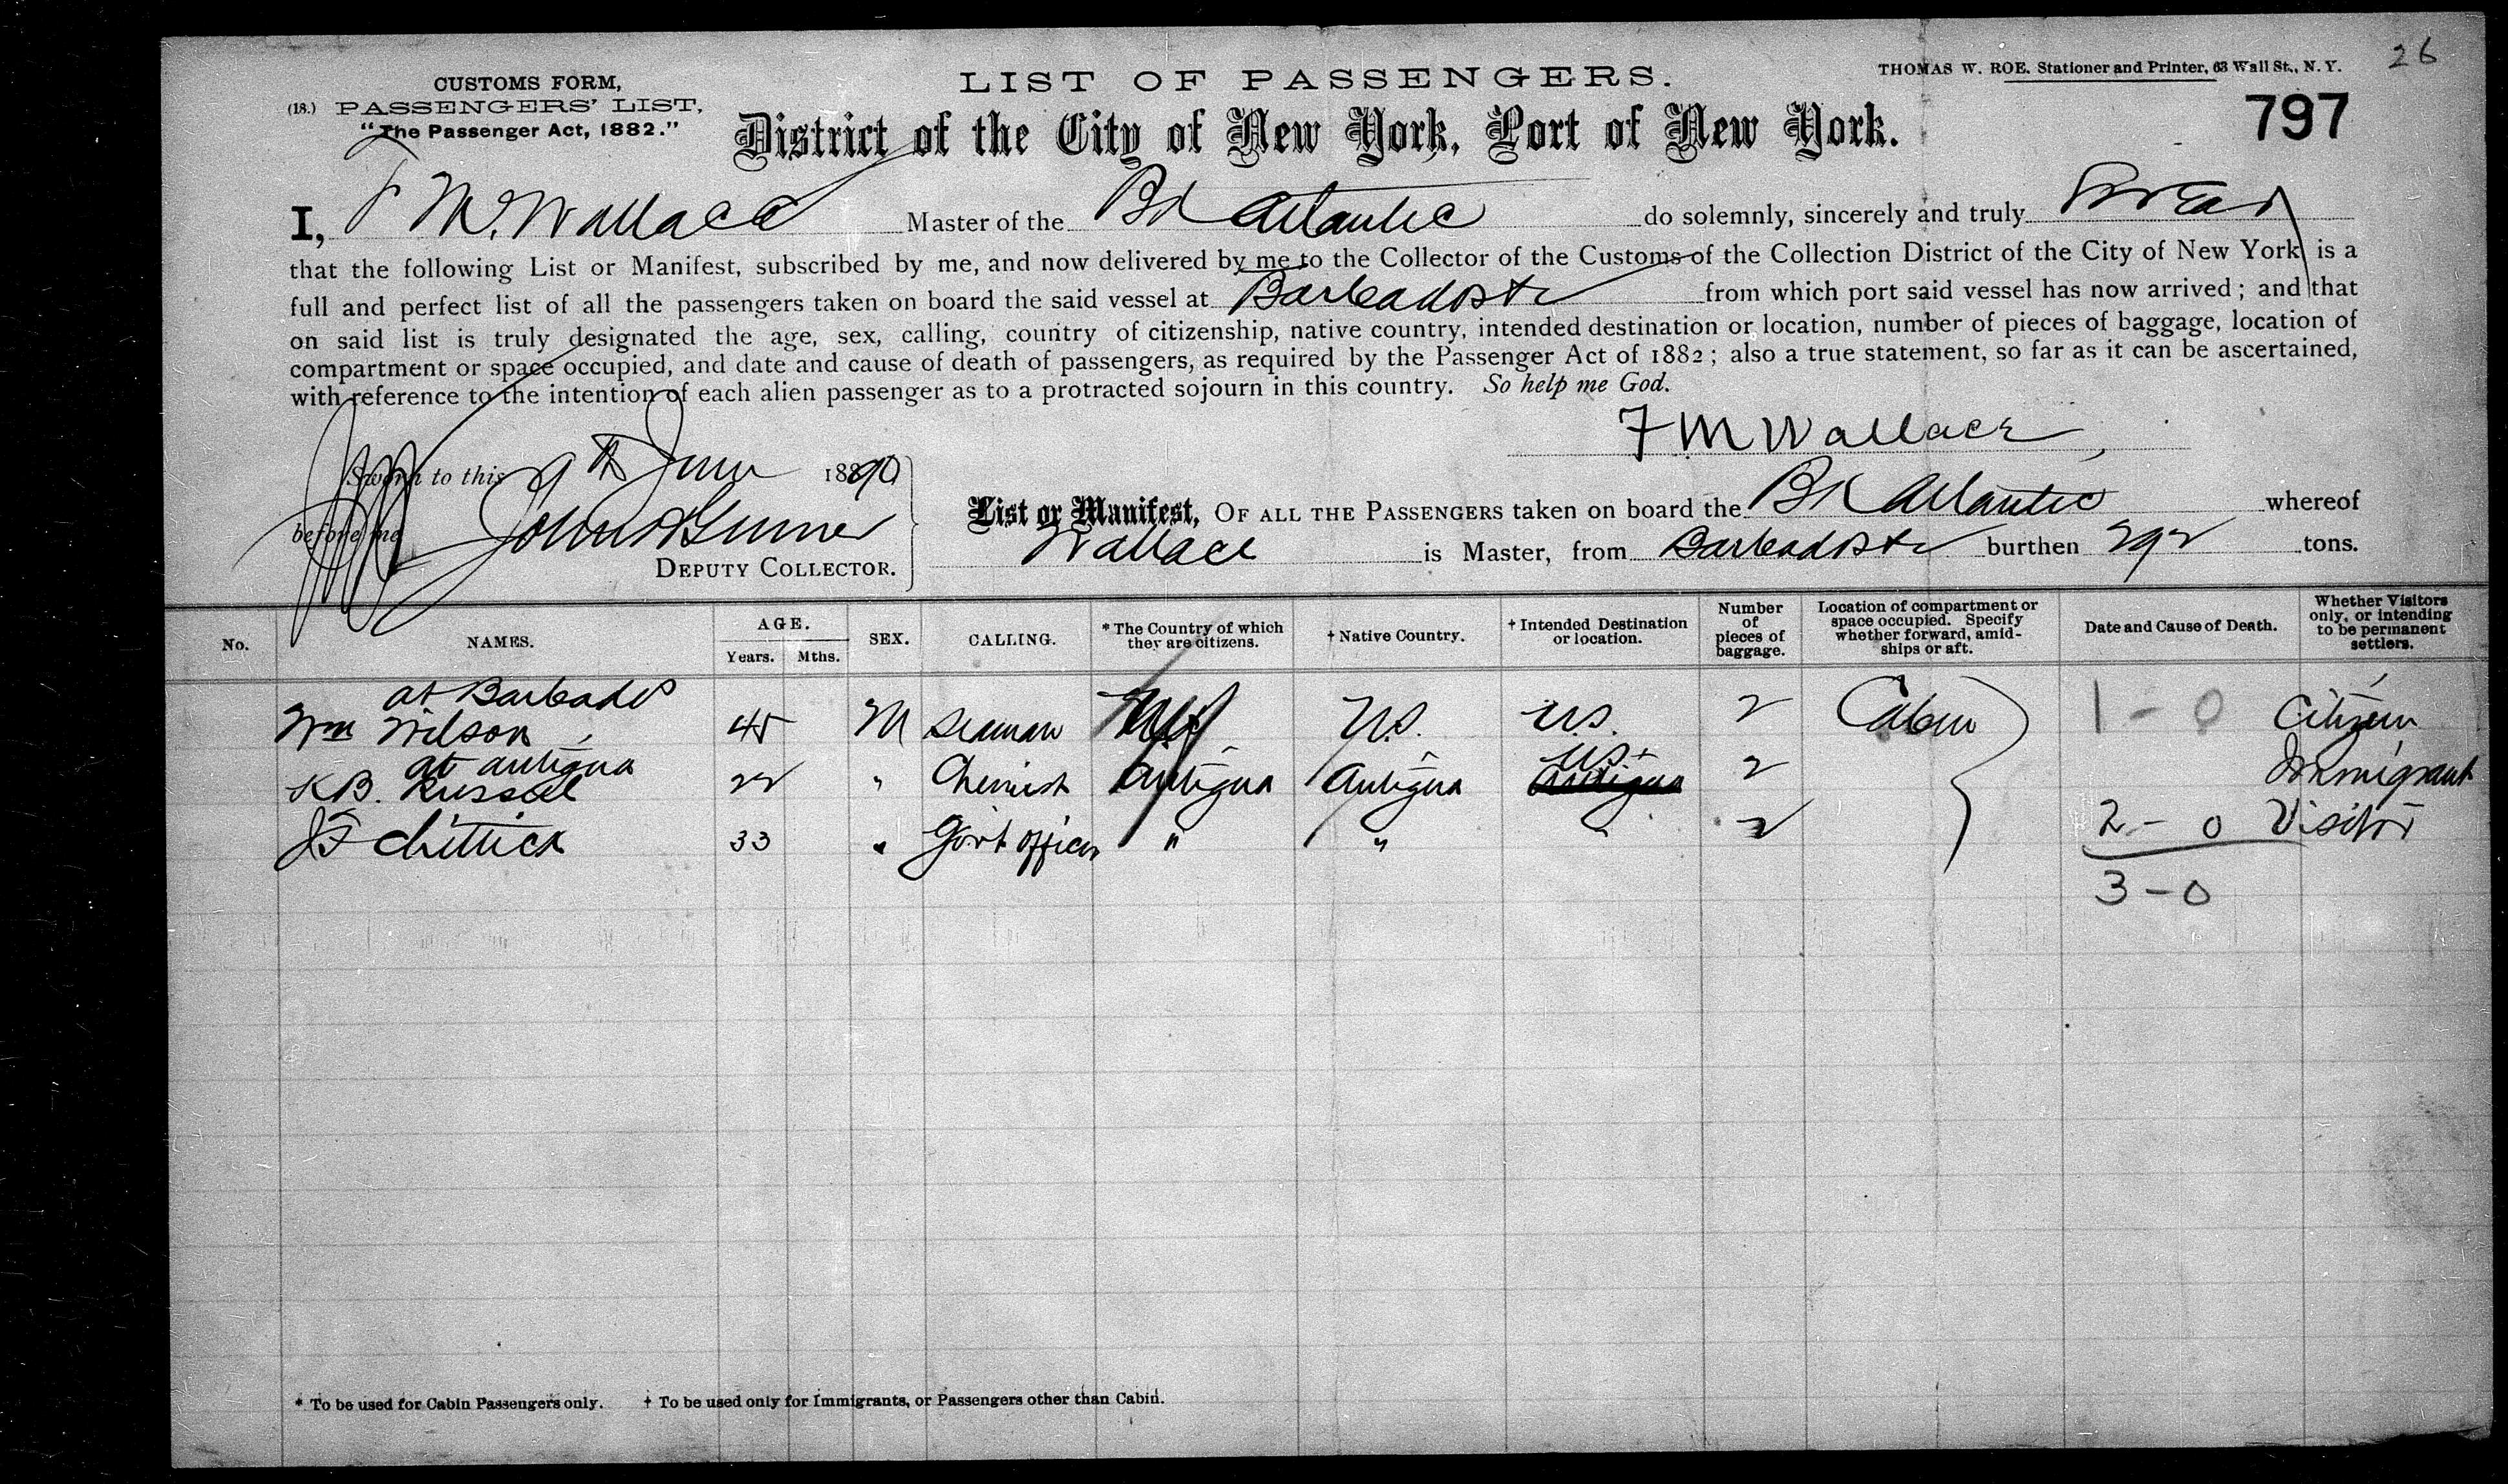 26
CUSTOMS FORM,
(18.) PASSENGERS' LIST,
"The Passenger Act, 1882."
LIST OF PASSENGERS.
THOMAS W. ROE. Stationer and Printer, 63 Wall St., N. Y.
797
District of the City of New York, Port of New York.
I, F M. Wallace Master of the Bk Atlantic do solemnly, sincerely and truly swear
that the following List or Manifest, subscribed by me, and now delivered by me to the Collector of the Customs of the Collection District of the City of New York is a
full and perfect list of all the passengers taken on board the said vessel at Barbados &c from which port said vessel has now arrived; and that
on said list is truly designated the age, sex, calling, country of citizenship, native country, intended destination or location, number of pieces of baggage, location of
compartment or space occupied, and date and cause of death of passengers, as required by the Passenger Act of 1882; also a true statement, so far as it can be ascertained,
with reference to the intention of each alien passenger as to a protracted sojourn in this country. So help me God.
F M Wallace
Sworn to this 9th June 1890
before me John
DEPUTY COLLECTOR.
List or Manifest, OF ALL THE PASSENGERS taken on board the Bk Atlantic whereof
Wallace is Master, from Barbados &c burthen 292 tons.
No. NAMES. AGE. Years. Mths. SEX. CALLING. * The Country of which they are citizens. † Native Country. † Intended Destination or location. Number of pieces of baggage. Location of compartment or space occupied. Specify whether forward, amidships or aft. Date and Cause of Death. Whether Visitors only, or intending to be permanent settlers.
at Barbados
Wm Wilson 45 M Seaman U.S. U.S. U.S. 2 Cabin 1-0 Citizen
at Antigua
K B. Russell 22 " Chemist Antigua Antigua U.S. 2 Immigrant
J F Chittick 33 " Govt officer " " " 2 2-0 Visitor
3-0
* To be used for Cabin Passengers only. † To be used only for Immigrants, or Passengers other than Cabin.